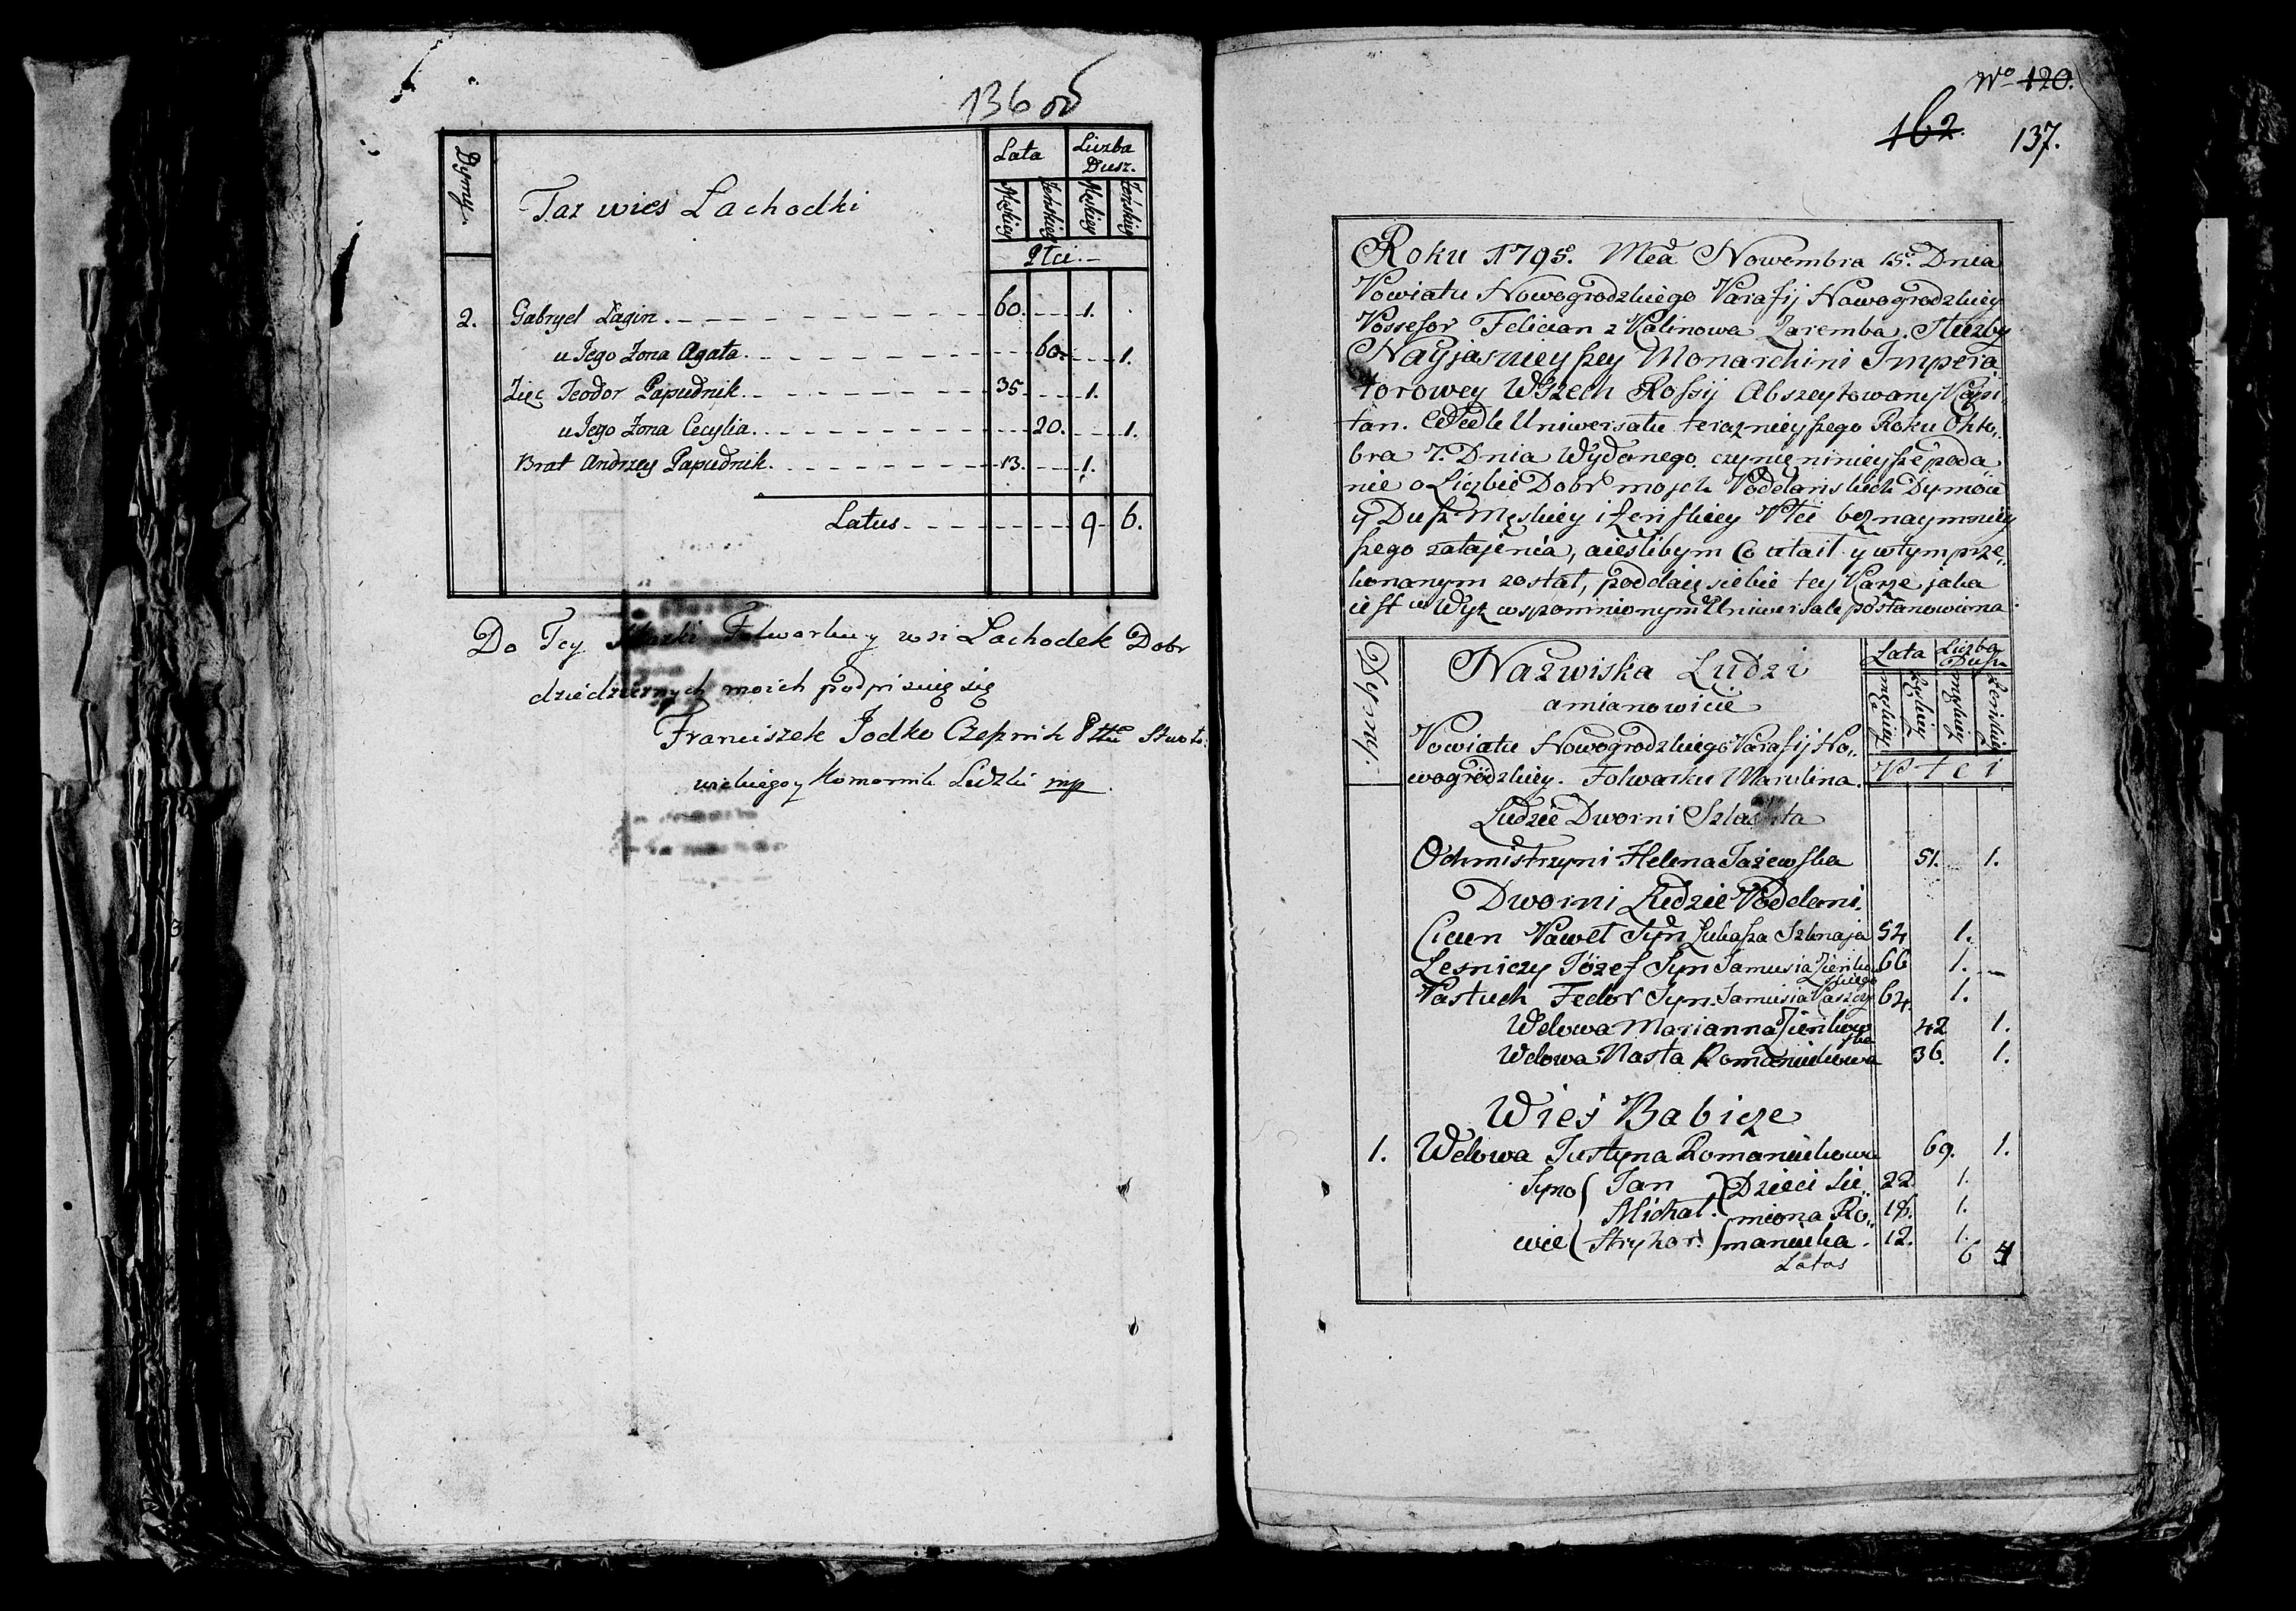 136 об
Dymy.
Taz wieś Lachodki
Lata
Liczba Dusz.
Męskiey
Żeńskiey
Męskiey
Żeńskiey
Płci.
2. Gabryel Łagin. 60. 1.
u Jego Żona Agata. 60. 1.
Zięc Teodor Papudnik. 35. 1.
u Jego Żona Cecylia. 20. 1.
Brat Andrzey Papudnik. 13. 1.
Latus. 9 6.
Do Tey Folwarku y wsi Lachodek Dobr
dziedzicznych moich podpisuię się
Franciszek Jodko Czesznik Pttu Słuwło:
wskiego y Komornik Lidzki mp
No 120.
162. 137.
Roku 1795. Mca Nowembra 15. Dnia
Powiatu Nowogrodzkiego Parafij Nowogrodzkiey
Possesor Felician z Kalinowa Zaremba. Służby
Nayjasnieyszey Monarchini Impera
torowey Wszech Rossij Abszeytowany Kapi„
tan. Wedle Uniwersału teraznieyszego Roku Okto„
bra 7. Dnia Wydanego czynię ninieysze poda„
nie o Liczbie Dobr mojch Poddanskich Dymow
y Dusz Męskiey i żenskiey Płci bez naymniey
szego zatajenia, a ieslibym Co utaił y w tym prze„
konanym został, poddaię siebie tey Karze jaka
iest w Wyż wspomnionym Uniwersale postanowiona
Dymy.
Nazwiska Ludzi
a mianowicie
Powiatu Nowogrodzkiego Parafij No„
wogrodzkiey. Folwarku Marulina.
Lata
Liczba Dusz
męskiey
żeńskiey
męskiey
żeńskiey
Płci
Ludzie Dworni Szlachta
Ochmistrzyni Helena Jażewska 51. 1.
Dworni Ludzie Poddani.
Ciwun Paweł Syn Łukasza Szknaja 54 1.
Lesniczy Józef Syn Samusia Zienkowskiego 66 1.
Pastuch Fedor Syn Samusia Paszczy 64. 1.
Wdowa Marianna Zienkowska 42 1.
Wdowa Nasta Romaniukowa 36. 1.
Wieś Babicze
1. Wdowa Justyna Romaniukowa 69. 1.
Syno Jan Dzieci Sie„ 22 1.
Michał. miona Ro„ 18. 1.
wie Hryhor. maniuka. 12. 1.
Latus 6 4